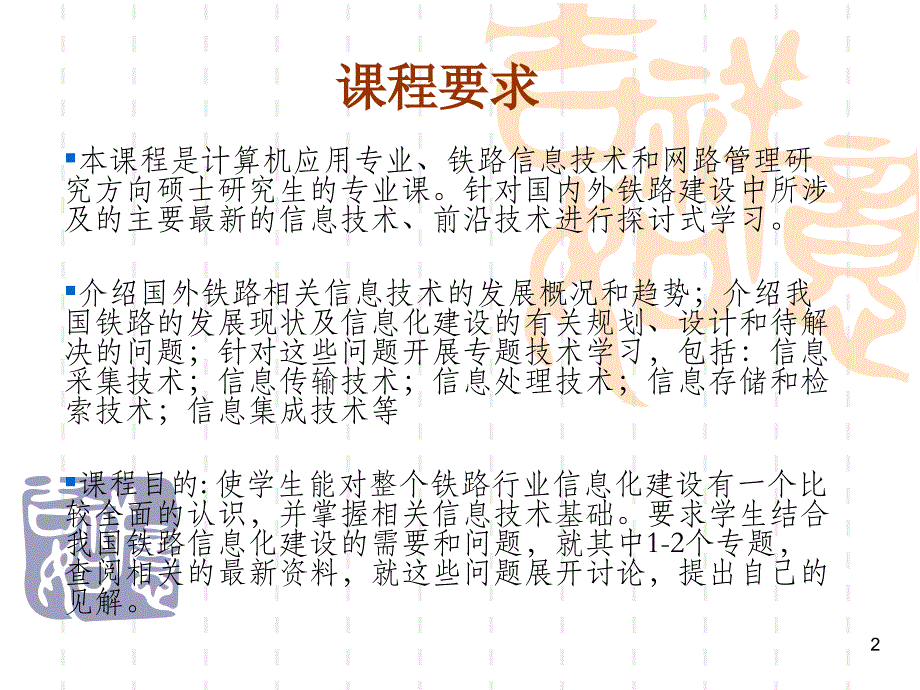 课程要求
本课程是计算机应用专业、铁路信息技术和网路管理研
究方向硕士研究生的专业课。针对国内外铁路建设中所涉
及的主要最新的信息技术、前沿技术进行探讨式学习。
介绍国外铁路相关信息技术的发展概况和趋势；介绍我
国铁路的发展现状及信息化建设的有关规划、设计和待解
决的问题；针对这些问题开展专题技术学习，包括：信息
采集技术；信息传输技术；信息处理技术；信息存储和检
索技术；信息集成技术等
课程目的：使学生能对整个铁路行业信息化建设有一个比
较全面的认识，并掌握相关信息技术基础。要求学生结合
我国铁路信息化建设的需要和问题，就其中1-2个专题，
查阅相关的最新资料，就这些问题展开讨论，提出自己的
见解。
2